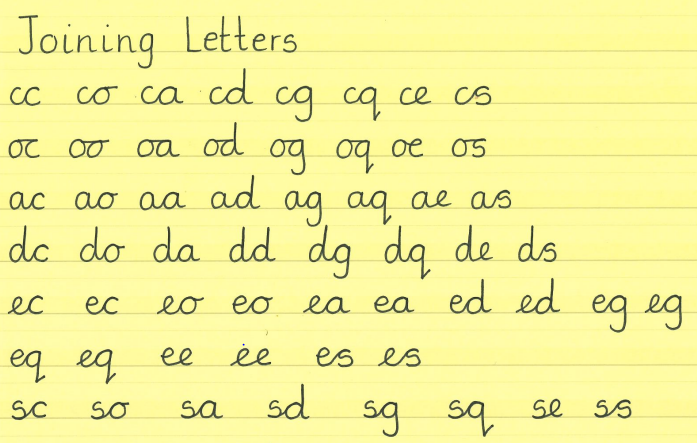 Joining Letters
cc co ca cd cg cq ce cs
oc oo oa od og oq oe os
ac ao aa ad ag aq ae as
dc do da dd dg dq de ds
ec ec eo eo ea ea ed ed eg eg
eq eq ee ee es es
sc so sa sd sg sq se ss